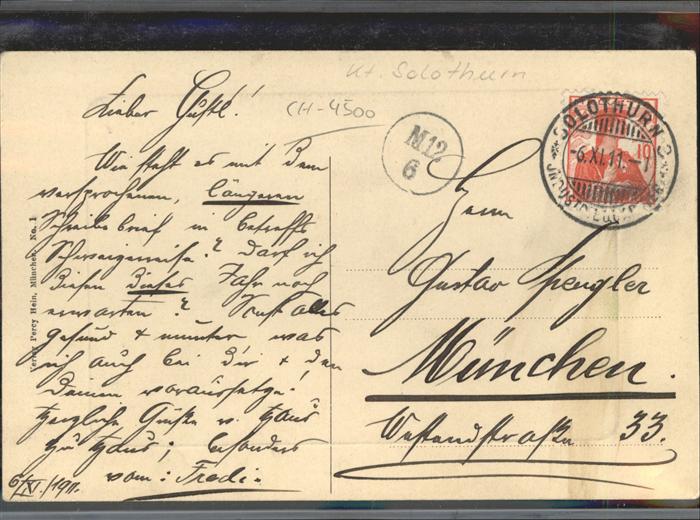 Kt. Solothurn
CH-4500
Lieber Gustl!
Wie steht es mit dem
versprochenen, längeren
Schreibebrief in betreffs
Darf ich
diesen dieses Jahr noch
erwarten? Sonst alles
gesund & munter was
ich auch bei Dir & den
Deinen voraussetze!
Herzliche Grüße v. Haus
zu Haus; besonders
vom: Fredi.
6/XI./1911.
Verlag Percy Hein, München. No. 1
M12.
6
SOLOTHURN 2
6.XI.11.-9
10
Herrn
Gustav Spengler
München.
Westendstraße 33.